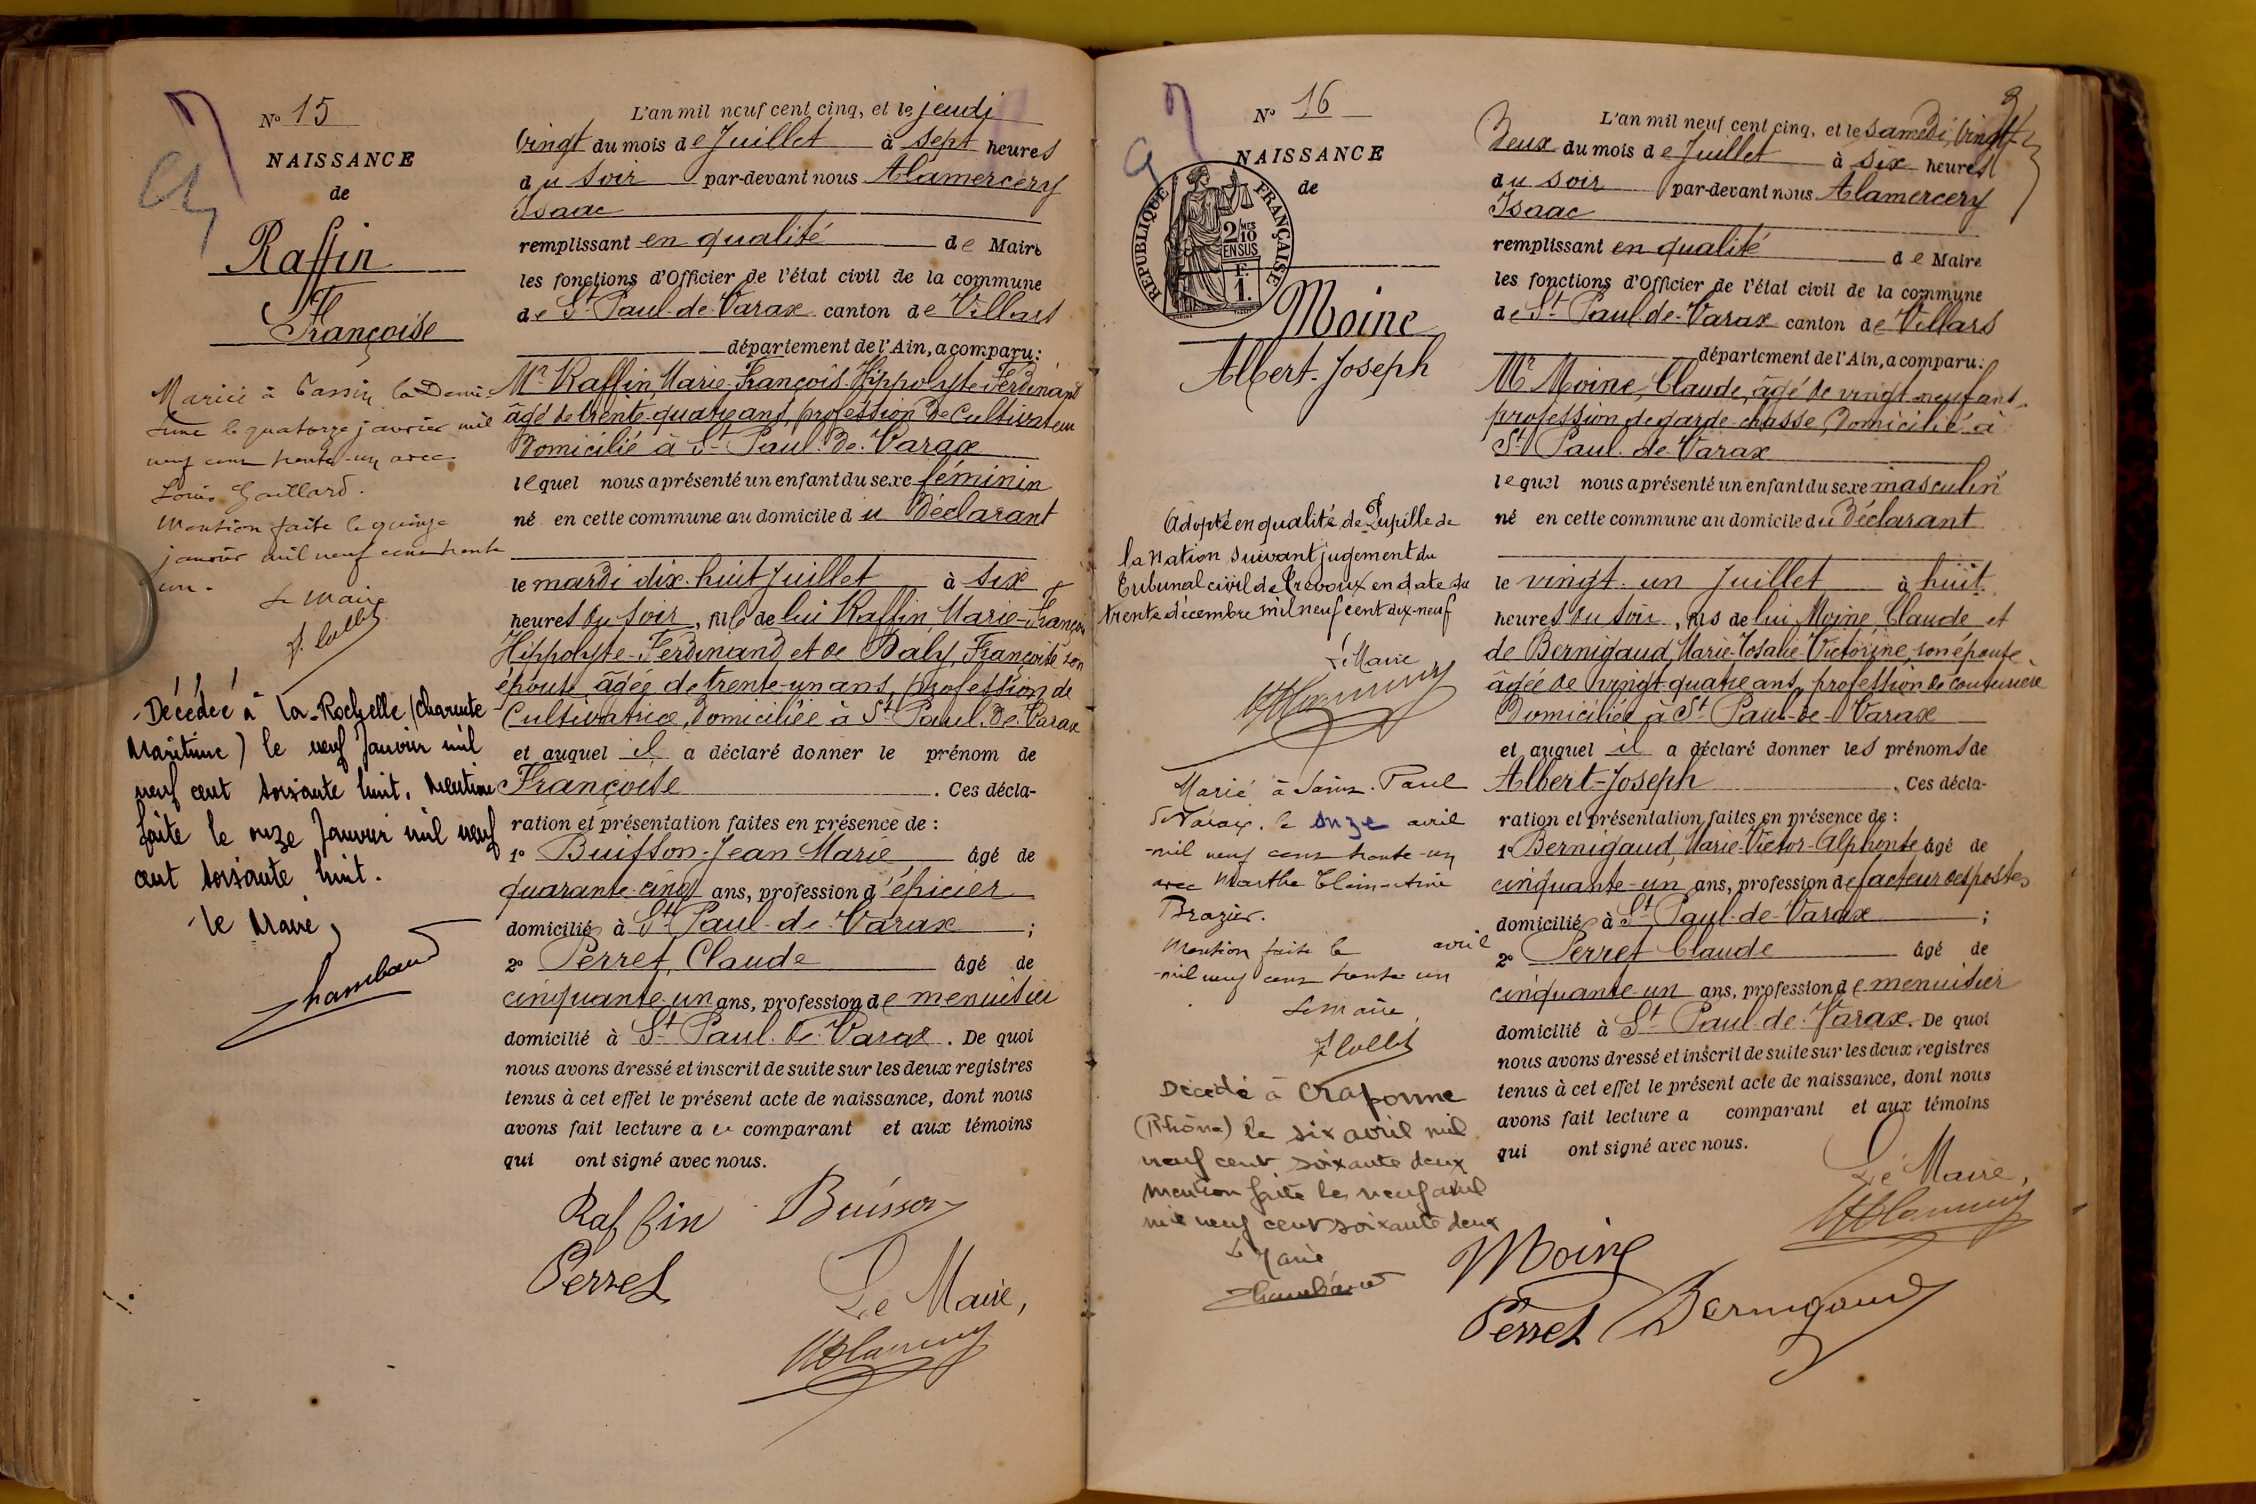 N° 15
NAISSANCE
de
Raffin
Françoise
Mariée à Tassin la Demi-
Lune le quatorze janvier mil
neuf cent trente-un avec
Louis Gaillard.
Mention faite le quinze
janvier mil neuf cent trente
un.
Le Maire
J. Collet
Décédée à La Rochelle (Charente
Maritime) le neuf Janvier mil
neuf cent soixante huit. Mention
faite le onze Janvier mil neuf
cent soixante huit.
Le Maire,
Chambaud
L'an mil neuf cent cinq, et le jeudi
vingt du mois de Juillet à sept heures
du soir par-devant nous Alamercery
Isaac
remplissant en qualité de Maire
les fonctions d'Officier de l'état civil de la commune
de St Paul-de-Varax canton de Villars
département de l'Ain, a comparu:
Mr Raffin Marie-François-Hippolyte-Ferdinand
âgé de trente-quatre ans, profession de Cultivateur
Domicilié à St Paul-de-Varax
lequel nous a présenté un enfant du sexe féminin
né en cette commune au domicile du Déclarant
le mardi dix-huit Juillet à six
heures du soir, fille de lui Raffin Marie-François
Hippolyte-Ferdinand et de Baly Françoise son
épouse, âgée de trente-un ans, profession de
Cultivatrice, domiciliée à St Paul-de-Varax
et auquel il a déclaré donner le prénom de
Françoise. Ces décla-
ration et présentation faites en présence de :
1° Buisson-Jean Marie âgé de
quarante-cinq ans, profession d'épicier
domiciliés à St Paul-de-Varax ;
2° Perret Claude âgé de
cinquante-un ans, profession de menuisier
domicilié à St Paul-de-Varax. De quoi
nous avons dressé et inscrit de suite sur les deux registres
tenus à cet effet le présent acte de naissance, dont nous
avons fait lecture au comparant et aux témoins
qui ont signé avec nous.
Raffin Buisson
Perret
Le Maire,
N° 16
NAISSANCE
de
REPUBLIQUE FRANÇAISE
2/10 MES
EN SUS
F.
1.
Moine
Albert-Joseph
Adopté en qualité de Pupille de
la Nation suivant jugement du
Tribunal civil de Trevoux en date du
trente décembre mil neuf cent dix-neuf
Le Maire
Marié à Saint-Paul
de Varax, le onze avril
mil neuf cent trente-un
avec Marthe Clémentine
Brazier.
Mention faite le avril
mil neuf cent trente un
Le Maire,
J. Collet
Décédé à Craponne
(Rhône) le six avril mil
neuf cent soixante deux
Mention faite le neuf avril
mil neuf cent soixante deux
Le Maire
Chambaud
L'an mil neuf cent cinq, et le samedi vingt-
Deux du mois de Juillet à six heures
du soir par-devant nous Alamercery
Isaac
remplissant en qualité de Maire
les fonctions d'Officier de l'état civil de la commune
de St Paul-de-Varax canton de Villars
département de l'Ain, a comparu:
Mr Moine, Claude, âgé de vingt-neuf ans,
profession de garde-chasse, Domicilié à
St Paul-de-Varax
lequel nous a présenté un enfant du sexe masculin
né en cette commune au domicile du Déclarant
le vingt-un Juillet à huit
heures du soir, fils de lui, Moine, Claude et
de Bernigaud, Marie-Rosalie-Victorine, son épouse,
âgée de vingt-quatre ans, profession de couturière
Domiciliée à St Paul-de-Varax
et auquel il a déclaré donner les prénoms de
Albert-Joseph. Ces décla-
ration et présentation faites en présence de :
1° Bernigaud, Marie-Victor-Alphonse âgé de
cinquante-un ans, profession de facteur des postes
domiciliés à St Paul-de-Varax ;
2° Perret Claude âgé de
cinquante-un ans, profession de menuisier
domicilié à St Paul-de-Varax. De quoi
nous avons dressé et inscrit de suite sur les deux registres
tenus à cet effet le présent acte de naissance, dont nous
avons fait lecture a comparant et aux témoins
qui ont signé avec nous.
Le Maire,
Moine
Perret Bernigaud